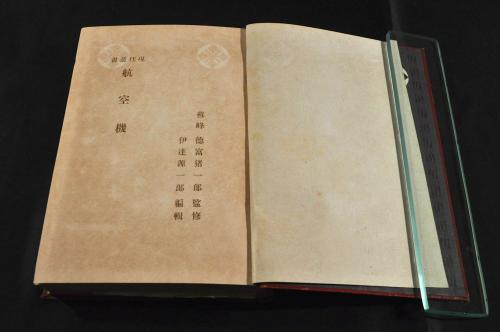 現代叢書
航空機
蘇峰 德富猪一郎 監修
伊達源一郎 編輯